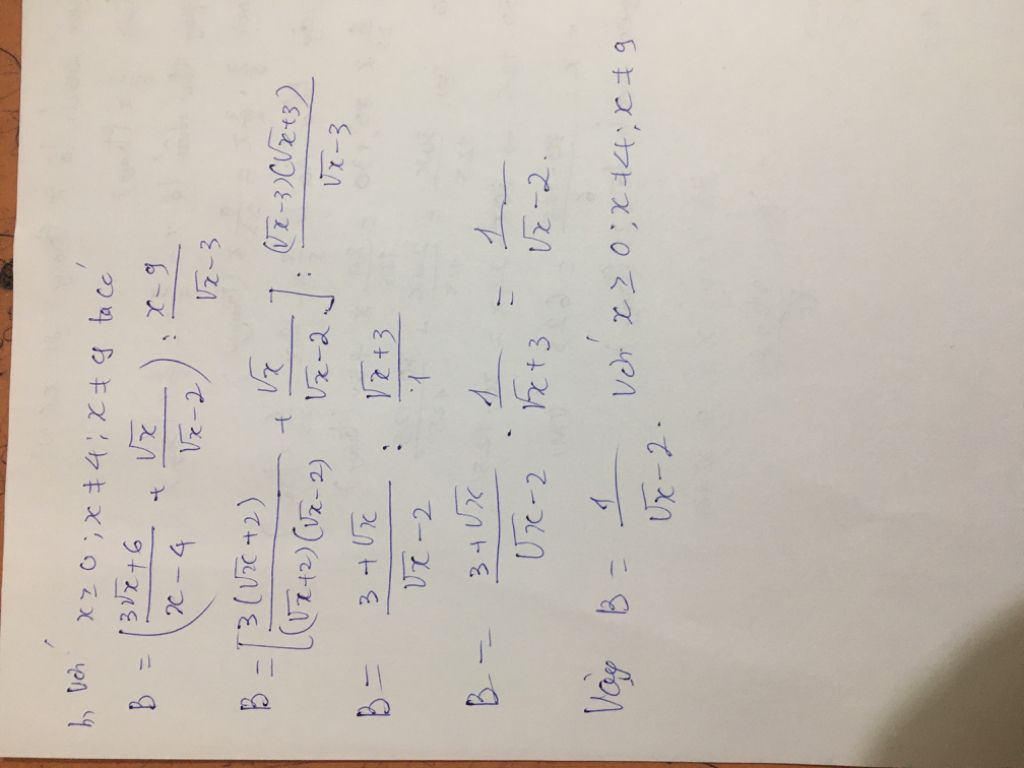 b, Với x ≥ 0 ; x ≠ 4 ; x ≠ 9 ta có
B = ( (3√x+6)/(x-4) + √x/(√x-2) ) : (x-9)/(√x-3)
B = [ 3(√x+2)/((√x+2)(√x-2)) + √x/(√x-2) ] : (√x-3)(√x+3)/(√x-3)
B = (3+√x)/(√x-2) : (√x+3)/1
B = (3+√x)/(√x-2) . 1/(√x+3) = 1/(√x-2).
Vậy B = 1/(√x-2). với x ≥ 0 ; x ≠ 4 ; x ≠ 9